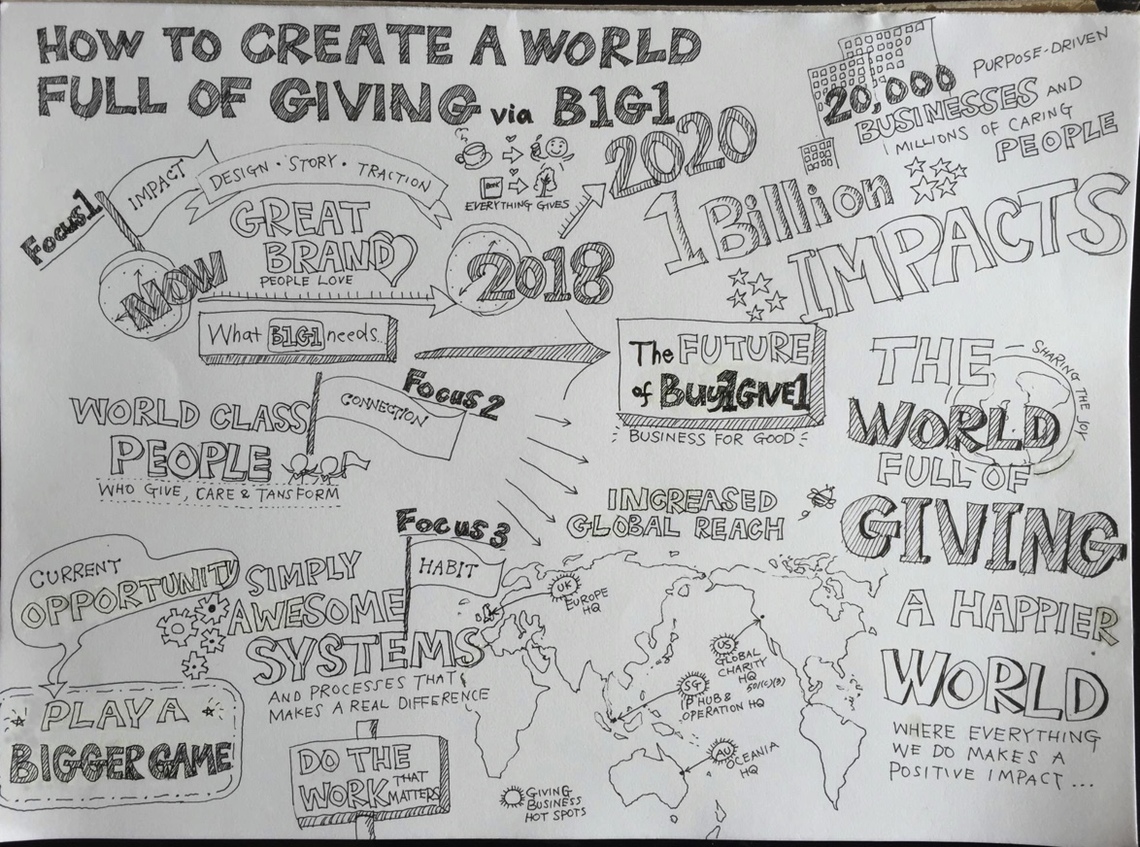 HOW TO CREATE A WORLD
FULL OF GIVING via B1G1
20,000
PURPOSE-DRIVEN
BUSINESSES AND
MILLIONS OF CARING
PEOPLE
Focus 1
IMPACT
DESIGN · STORY · TRACTION
GREAT
BRAND
PEOPLE LOVE
BOOK
EVERYTHING GIVES
NOW
2018
2020
1 Billion
IMPACTS
What B1G1 needs...
The FUTURE
of Buy1GIVE1
BUSINESS FOR GOOD
Focus 2
CONNECTION
WORLD CLASS
PEOPLE
WHO GIVE, CARE & TANSFORM
INCREASED
GLOBAL REACH
THE
WORLD
FULL OF
GIVING
SHARING THE JOY
A HAPPIER
WORLD
WHERE EVERYTHING
WE DO MAKES A
POSITIVE IMPACT...
Focus 3
HABIT
SIMPLY
AWESOME
SYSTEMS
AND PROCESSES THAT
MAKES A REAL DIFFERENCE
CURRENT
OPPORTUNITY
PLAY A
BIGGER GAME
DO THE
WORK THAT
MATTERS
UK
EUROPE
HQ
US
GLOBAL
CHARITY
HQ
501(C)(3)
SG
IP HUB &
OPERATION HQ
AU
OCEANIA
HQ
GIVING
BUSINESS
HOT SPOTS